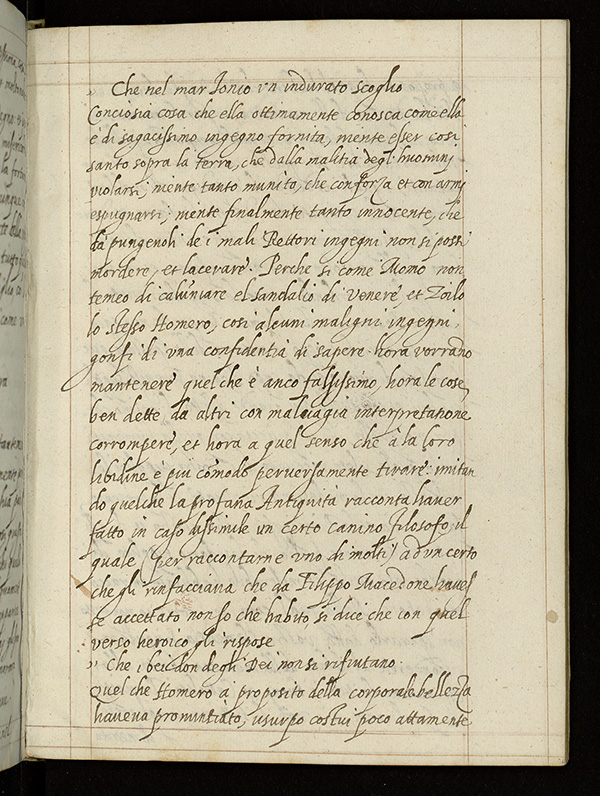 " Che nel mar Ionio vn indurato scoglio
Conciosia cosa che ella ottimamente conosca come ella
è di sagacissimo ingegno fornita, niente esser cosi
santo sopra la terra, che dalla malitia degl' huominj
violarsi, niente tanto munito, che con forza et con armj
espugnarsi; niente finalmente tanto innocente, che
da pungenoli de i mali Rettori ingegni non si possi
mordere, et lacerare. Perche si come Momo non
temeo di caluniare el sandalio di Venere, et Zoilo
lo stesso Homero, cosi alcuni maligni ingegni,
gonfi di vna confidentia di sapere hora vorrano
mantenere quel che è anco falsissimo, hora le cose
ben dette da altri con maluagia interpretatione
corrompere, et hora a quel senso che à la loro
libidine è piu comodo peruersamente tirare: imitan
do quelche la profana Antiquita racconta hauer
fatto in caso dissimile un certo canino filosofo, il
quale (per raccontarne vno di molti) ad vn certo
che gli rinfacciaua che da Filippo Macedone haues
se accettato non so che habito si dice che con quel
verso heroico gli rispose
" Che i bei don degli Dei non si rifiutano.
Quel che Homero a proposito della corporale bellezza
haueua pronuntiato, vsurpo costui poco attamente